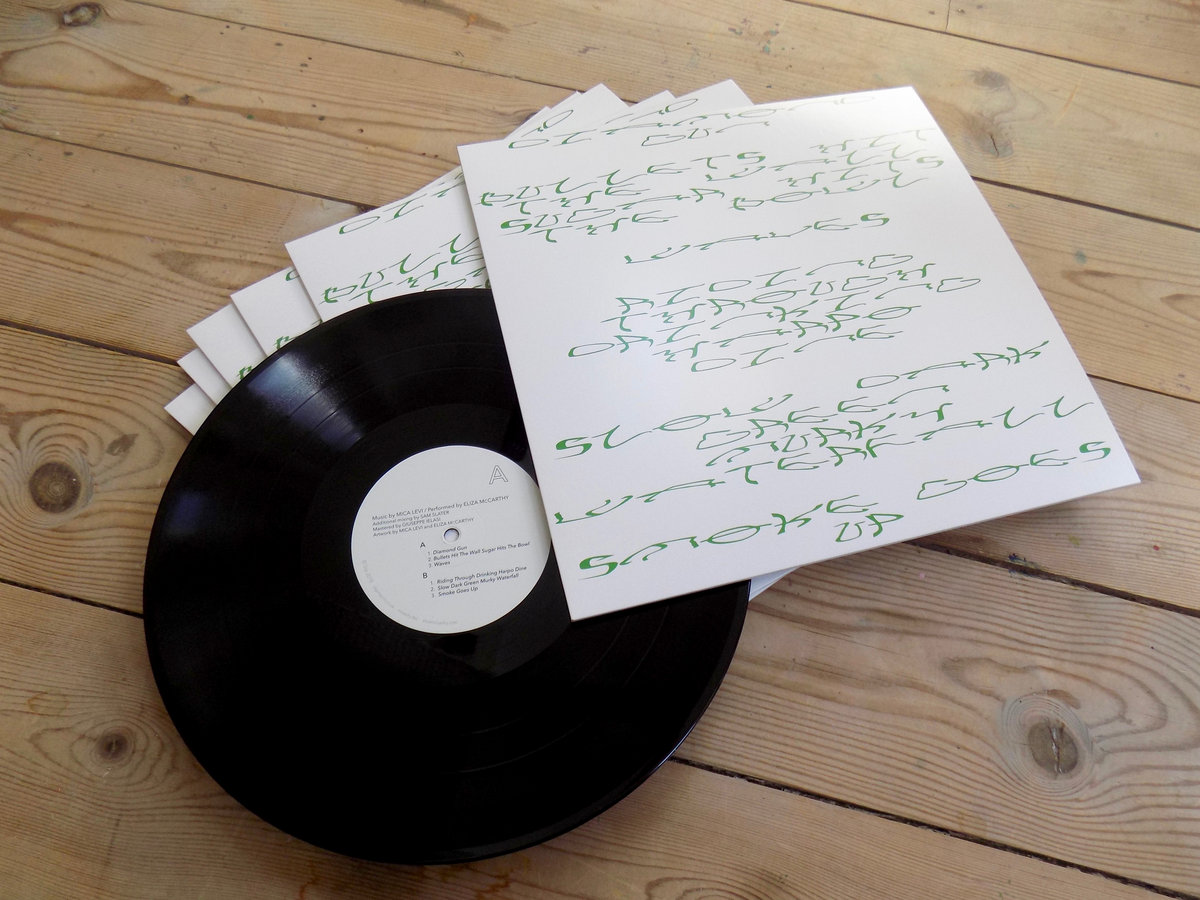 DIAMOND
GUN
BULLETS HIT
THE WALL
SUGAR HITS
THE BOWL
WAVES
RIDING
THROUGH
DRINKING
HARPO
DINE
SLOW DARK
GREEN
MURKY
WATERFALL
SMOKE GOES
UP
A
Music by MICA LEVI / Performed by ELIZA McCARTHY
Additional mixing by SAM SLATER
Mastered by GIUSEPPE IELASI
Artwork by MICA LEVI and ELIZA McCARTHY
A
1. Diamond Gun
2. Bullets Hit The Wall Sugar Hits The Bowl
3. Waves
B
1. Riding Through Drinking Harpo Dine
2. Slow Dark Green Murky Waterfall
3. Smoke Goes Up